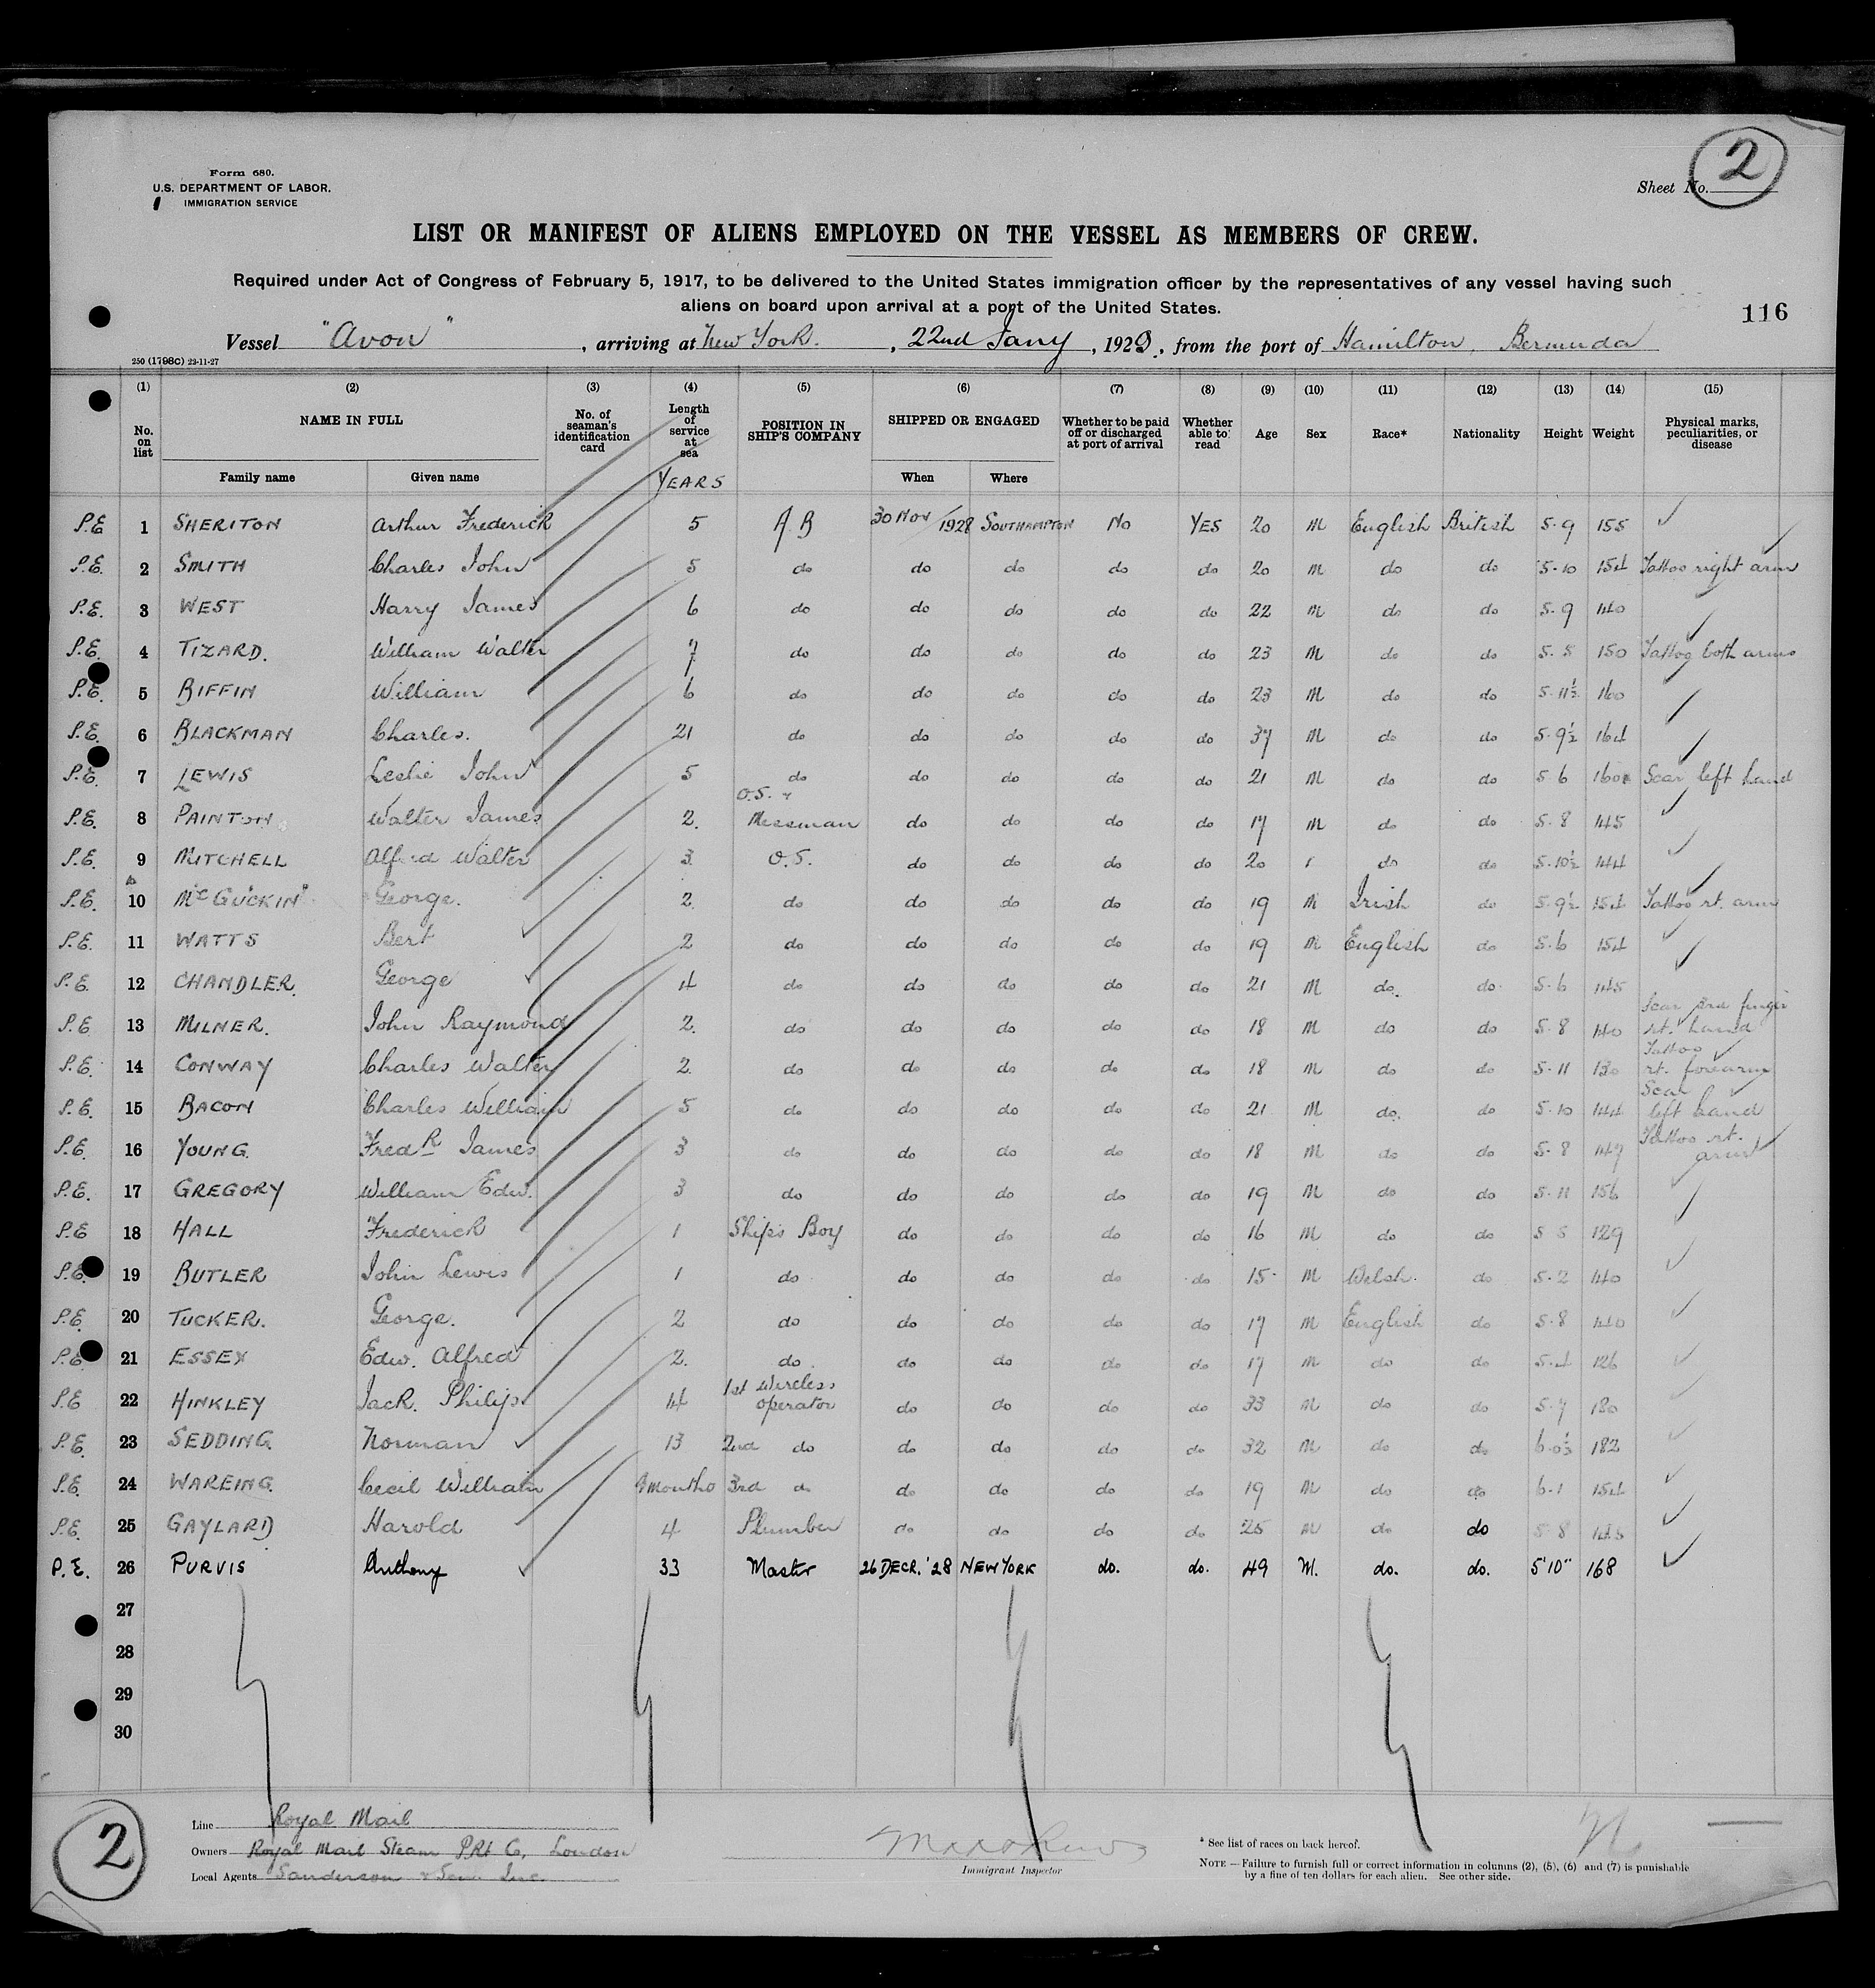 Form 680.
U.S. DEPARTMENT OF LABOR.
IMMIGRATION SERVICE
Sheet No. 2
LIST OR MANIFEST OF ALIENS EMPLOYED ON THE VESSEL AS MEMBERS OF CREW.
Required under Act of Congress of February 5, 1917, to be delivered to the United States immigration officer by the representatives of any vessel having such
aliens on board upon arrival at a port of the United States.
116
Vessel "Avon", arriving at New York., 22nd Jany, 1929., from the port of Hamilton, Bermuda
250 (1798c) 23-11-27
(1) (2) (3) (4) (5) (6) (7) (8) (9) (10) (11) (12) (13) (14) (15)
No. on list NAME IN FULL No. of seaman's identification card Length of service at sea POSITION IN SHIP'S COMPANY SHIPPED OR ENGAGED Whether to be paid off or discharged at port of arrival Whether able to read Age Sex Race* Nationality Height Weight Physical marks, peculiarities, or disease
Family name Given name YEARS When Where
P.E 1 SHERITON Arthur Frederick 5 A.B 30 Nov 1928 SOUTHAMPTON No YES 20 M English British 5-9 155
P.E. 2 SMITH Charles John 5 do do do do do 20 M do do 5-10 154 Tattoo right arm
P.E. 3 WEST Harry James 6 do do do do do 22 M do do 5-9 140
P.E. 4 TIZARD. William Walter 7 do do do do do 23 M do do 5-5 150 Tattoo both arms
P.E. 5 BIFFIN William 6 do do do do do 23 M do do 5-11½ 160
P.E. 6 BLACKMAN Charles. 21 do do do do do 37 M do do 5-9½ 164
P.E. 7 LEWIS Leslie John 5 do do do do do 21 M do do 5 6 160 Scar left hand
P.E. 8 PAINTON Walter James 2. O.S. & Messman do do do do 17 M do do 5-8 145
P.E. 9 MITCHELL Alfred Walter 3 O.S. do do do do 20 do do 5-10½ 144
P.E. 10 McGUCKIN George. 2 do do do do do 19 M Irish do 5-9½ 154 Tattoo rt. arm
P.E. 11 WATTS Bert 2 do do do do do 19 M English do 5-6 154
P.E. 12 CHANDLER. George 4 do do do do do 21 M do. do. 5-6 145
P.E 13 MILNER. John Raymond 2. do do do do do 18 M do do 5-8 140 Scar 3rd finger rt. hand
P.E. 14 CONWAY Charles Walter 2. do do do do do 18 M do do 5-11 130 Tattoo rt. forearm
P.E. 15 BACON Charles William 5 do do do do do 21 M do. do 5-10 144 Scar left hand
P.E. 16 YOUNG. Fredk James 3 do do do do do 18 M do do 5-8 147 Tattoo rt. arm
P.E. 17 GREGORY William Edw. 3 do do do do do 19 M do do 5-11 156
P.E 18 HALL Frederick 1 Ship's Boy do do do do 16 M do do 5 5 129
P.E. 19 BUTLER John Lewis 1 do do do do do 15 M Welsh. do 5-2 140
P.E. 20 TUCKER. George. 2 do do do do do 17 M English do 5-8 140
P.E. 21 ESSEX Edw. Alfred 2. do do do do do 17 M do do 5-4 126
P.E 22 HINKLEY Jack. Philip 14 1st Wireless operator do do do do 33 M do do 5-7 180
P.E. 23 SEDDING. Norman 13 2nd do do do do do 32 M do do 6-0½ 182
P.E. 24 WAREING. Cecil William 9 months 3rd do do do do do 19 M do do 6-1 154
P.E. 25 GAYLARD Harold 4 Plumber do do do do 25 M do do 5 8 145
P.E. 26 PURVIS Anthony 33 Master 26 DECR. '28 NEW YORK do. do. 49 M. do. do. 5'10" 168
27
28
29
30
2
Line Royal Mail
Owners Royal Mail Steam Pkt Co, London
Local Agents Sanderson & Son Inc.
Immigrant Inspector
* See list of races on back hereof.
NOTE — Failure to furnish full or correct information in columns (2), (5), (6) and (7) is punishable
by a fine of ten dollars for each alien. See other side.